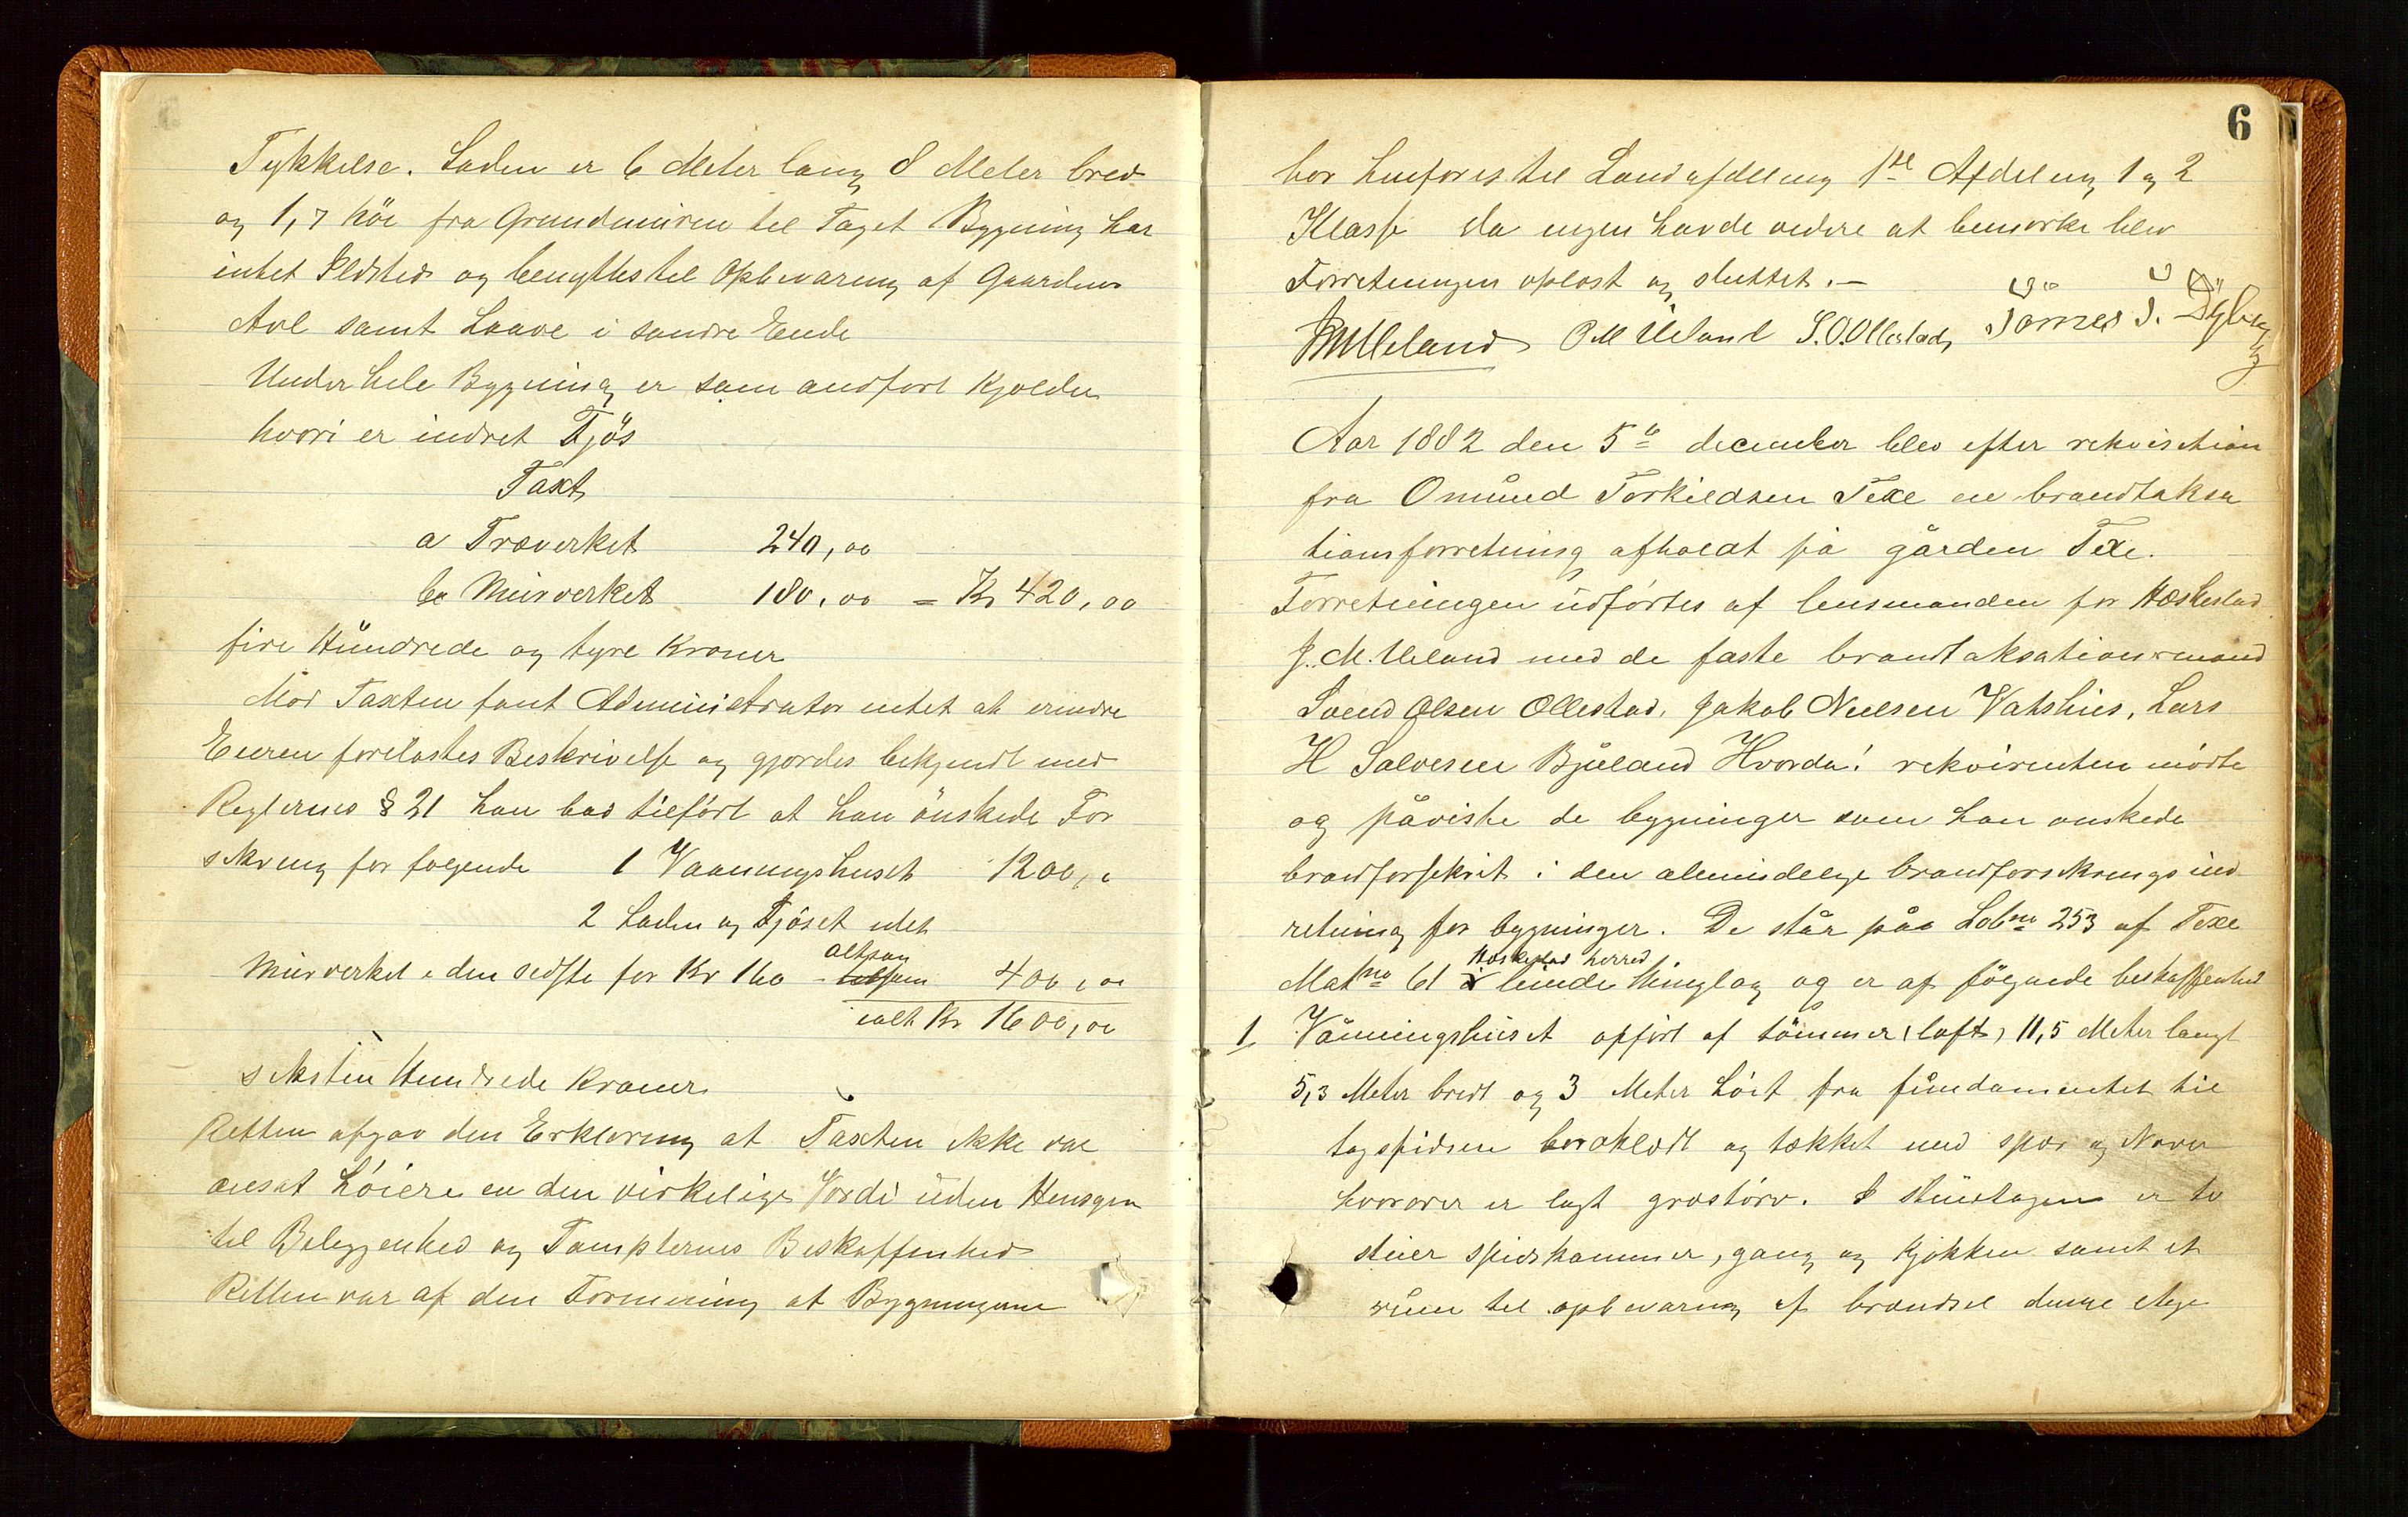 Tykkelse. Laden er 6 Meter lang 8 Meter bred
og 1,7 höi fra Grundmüren til Taget Bygning har
intet Ildsted og benyttes til Opbevaring af Gaardens
Avl samt Laave i søndre Ende
Under hele Bygning er som andført Kjelder
hvori er indret Fjös
Taxt
a Træverket 240,00
b Mürverket 180,00 = Kr 420,00
fire Hündrede og tyve Kroner
Mod Taxten fant Administrator intet at erindre
Eieren forelæstes Beskrivelse og gjordes bekjendt med
Reglernes § 21 han bad tilført at han önskede For
sikring for følgende 1 Vaaningshuset 1200,0
2 Laden og Fjöset uden
Mürverket i den sidste for Kr 160 altsaa 400,00
ialt Kr 1600,00
seksten Hundrede Kroner
Retten afgav den Erklæring at Taxten ikke var
ansat höiere en den virkelige Værdi üden Hensyn
til Beliggenhed og Tompternes Beskaffenhed
Retten var af den Formening at Bygningerne
6
bør henføres til Landafdeling 1ste Afdeling 1 og 2
Klasse da ingen havde videre at bemærke blev
Forretningen oplæst og sluttet. —
JMUeland O M Ueland S.O.Ollestad Tønnes T. Dybing
Aar 1882 den 5te december blev efter rekvisition
fra Omünd Torkildsen Texe en brandtaksa
tionsforretning afholdt på gården Texe.
Forretningen üdførtes af lensmanden for Hæskestad
J. M. Ueland med de faste brandtaksationsmænd
Svend Olsen Ollestad, Jakob Nielsen Vatshus, Lars
H Salvesen Bjüland Hvorda! rekvirenten mødte
og påviste de bygninger som han ønskede
brandforsekret i den almindelige brandforsikrings ind
retning for bygninger. De står på Løbno 253 af Texe
Hæskestad herred
Matno 61 i lünde thinglag og er af følgende beskaffenhed
1 Våningshuset opført af tömmer (loft) 11,5 Meter langt
5,3 Meter bredt og 3 Meter höit fra fündamentet til
tagspidsen bordklædt og tækket med spær og Næver
hvorover er lagt græstørv. I stüetagen er to
stüer spiskammer, gang og kjøkken samt et
rüm til opbevaring af brændsel denne etage